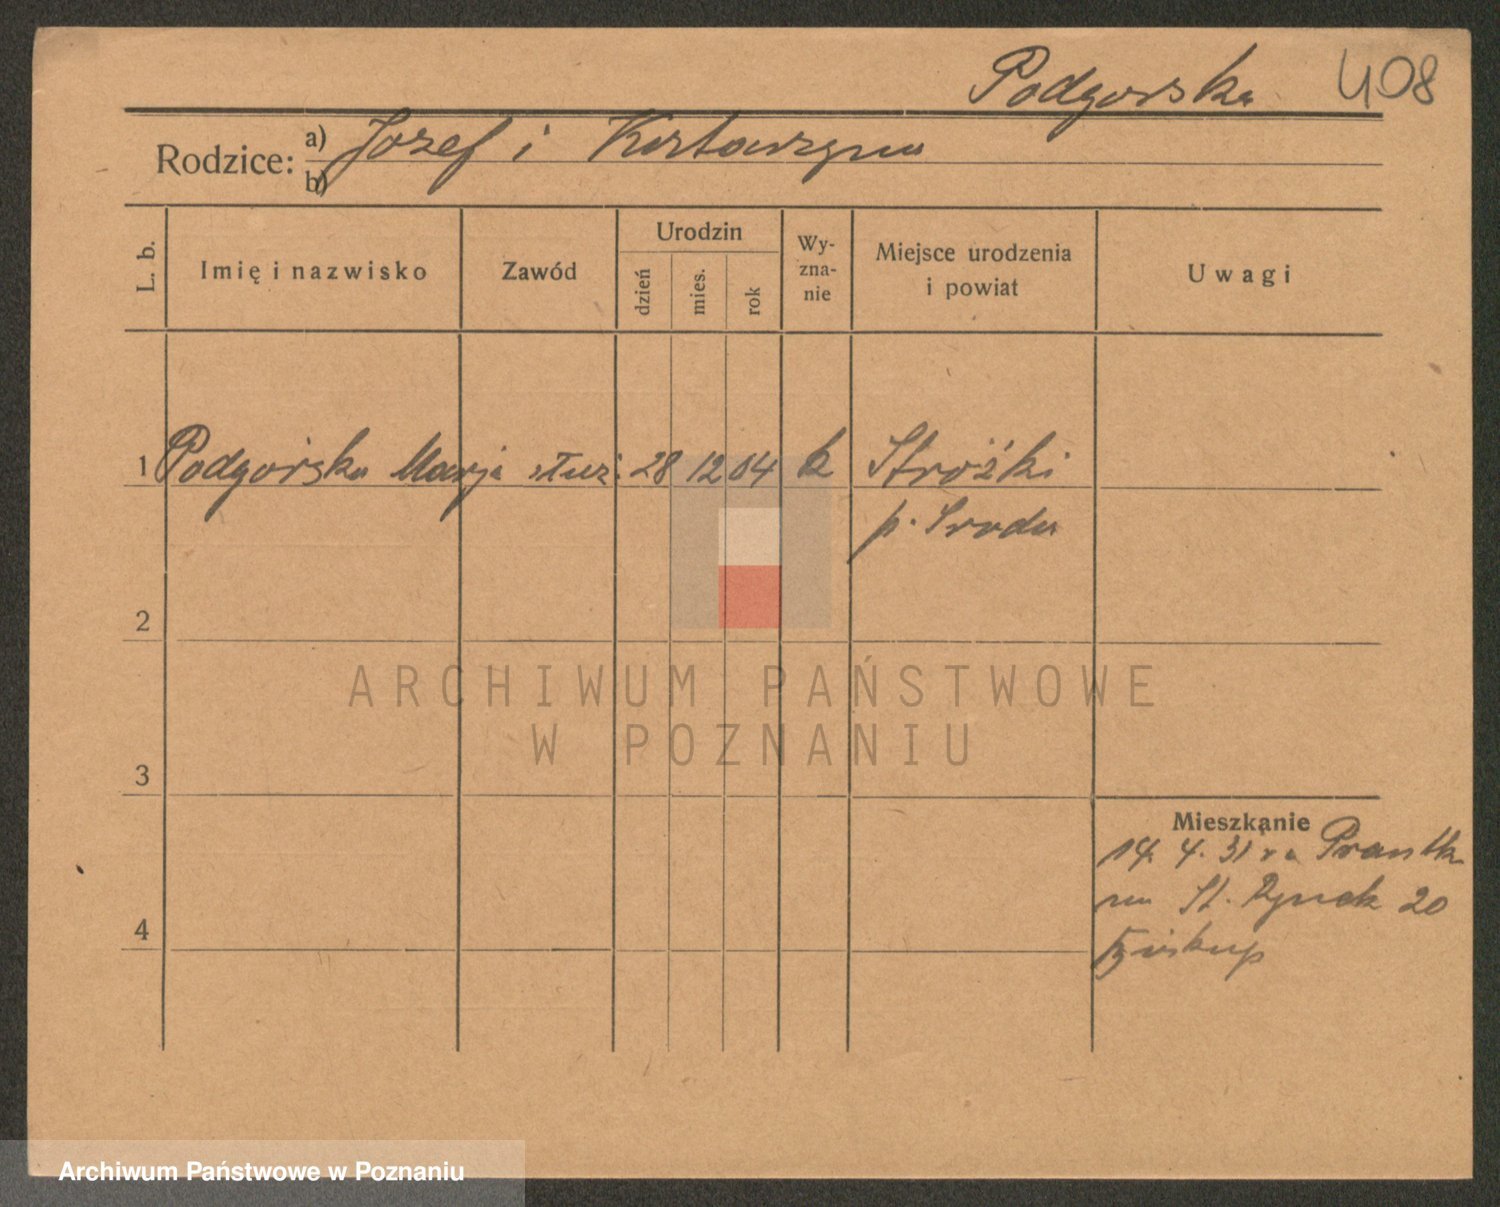 Podgorska 408
Rodzice: a) Jozef i Katarzyna
b)
L. b. Imię i nazwisko Zawód Urodzin dzień mies. rok Wy-zna-nie Miejsce urodzenia i powiat Uwagi
1 Podgórska Marja służ. 28 12 04 k Stróżki
p. Sroda
2
3
4
Mieszkanie
14. 4. 31
St. Rynek 20
Biskup
ARCHIWUM PAŃSTWOWE
W POZNANIU
Archiwum Państwowe w Poznaniu